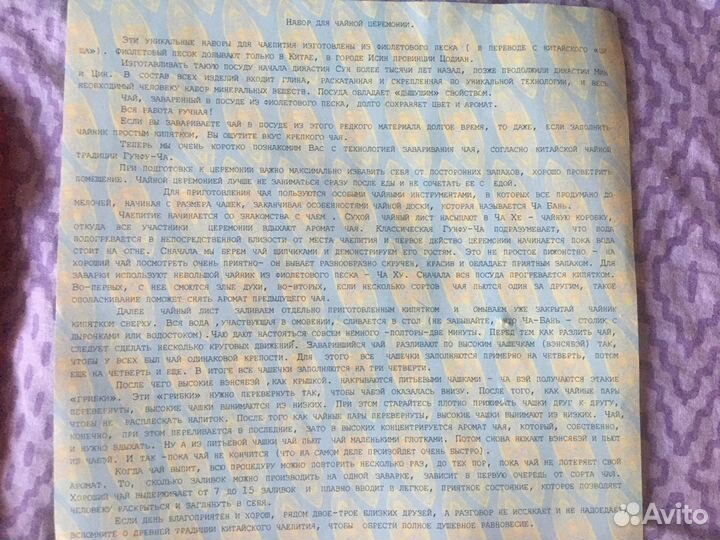 Набор для чайной церемонии.
Эти уникальные наборы для чаепития изготовлены из фиолетового песка ( в переводе с китайского «Ци
ша»). Фиолетовый песок добывают только в Китае, в городе Исин провинции Цодиан.
Изготавливать такую посуду начала династия Сун более тысячи лет назад, позже продолжили династии Мин
и Цин. В состав всех изделий входит глина, раскатанная и скрепленная по уникальной технологии, и весь
необходимый человеку набор минеральных веществ. Посуда обладает «дышущим» свойством.
Чай, заваренный в посуде из фиолетового песка, долго сохраняет цвет и аромат.
Вся работа ручная!
Если вы завариваете чай в посуде из этого редкого материала долгое время, то даже, если заполнить
чайник простым кипятком, Вы ощутите вкус крепкого чая.
Теперь мы очень коротко познакомим Вас с технологией заваривания чая, согласно китайской чайной
традиции Гунфу-Ча.
При подготовке к церемонии важно максимально избавить себя от посторонних запахов, хорошо проветрить
помещение. Чайной церемонией лучше не заниматься сразу после еды и не сочетать ее с едой.
Для приготовления чая пользуются особыми чайными инструментами, в которых все продумано до
мелочей, начиная с размера чашек, заканчивая особенностями чайной доски, которая называется Ча Бань.
Чаепитие начинается со знакомства с чаем . Сухой чайный лист насыпают в Ча Хе - чайную коробку,
откуда все участники церемонии вдыхают аромат чая. Классическая Гунфу-Ча подразумевает, что вода
подогревается в непосредственной близости от места чаепития и первое действо церемонии начинается пока вода
стоит на огне. Сначала мы берем чай щипчиками и демонстрируем его гостям. Это не простое пижонство - на
хороший чай посмотреть очень приятно- он бывает разнообразно скручен, красив и обладает приятным запахом. Для
заварки используют небольшой чайник из фиолетового песка - Ча Ху. Сначала вся посуда прогревается кипятком.
Во-первых, с нее смоются злые духи, во-вторых, если несколько сортов чая пьются один за другим, такое
ополаскивание поможет снять аромат предыдущего чая.
Далее чайный лист заливаем отдельно приготовленным кипятком и омываем уже закрытай чайник
кипятком сверху. Вся вода ,участвующая в омовении, сливается в стол (не забывайте, что Ча-Бань - столик с
дырочками или водостоком).Чаю дают настояться совсем немного -полторы-две минуты. Перед тем как разлить чай,
следует сделать несколько круговых движений. Заварившийся чай разливают по высоким чашечкам (вэнсявэй) так,
чтобы у всех был чай одинаковой крепости. Для этого все чашечки заполняются примерно на четверть, потом
еще на четверть и еще. В итоге все чашечки заполняются на три четверти.
После чего высокие вэнсявэй ,как крышкой, накрываются питьевыми чашками - ча бэй получаются этакие
«грибки». Эти «грибки» нужно перевернуть так, чтобы чабэй оказалась внизу. После того, как чайные пары
перевернуты, высокие чашки вынимаются из низких. При этом старайтесь плотно прижимать чашки друг к другу,
чтобы не расплескать напиток. После того как чайные пары перевернуты, высокие чашки вынимают из низких. Чай,
конечно, при этом переливается в последние, зато в высоких концентрируется аромат чая, который, собственно,
и нужно вдыхать. Ну а из питьевой чашки чай пьют чай маленькими глотками. Потом снова нюхают вэнсявэй и пьют
из чабэй. И так -пока чай не кончится (что на самом деле произойдет очень быстро).
Когда чай выпит, всю процедуру можно повторить несколько раз, до тех пор, пока чай не потеряет свой
аромат. То, сколько заливок можно производить на одной заварке, зависит в первую очередь от сорта чая.
Хороший чай выдерживает от 7 до 15 заливок и плавно вводит в легкое, приятное состояние, которое позволяет
человеку раскрыться и заглянуть в себя.
Если день благоприятен и хорош, рядом двое-трое близких друзей, а разговор не иссякает и не надоедает
вспомните о древней традиции китайского чаепития, чтобы обрести полное душевное равновесие.
Avito